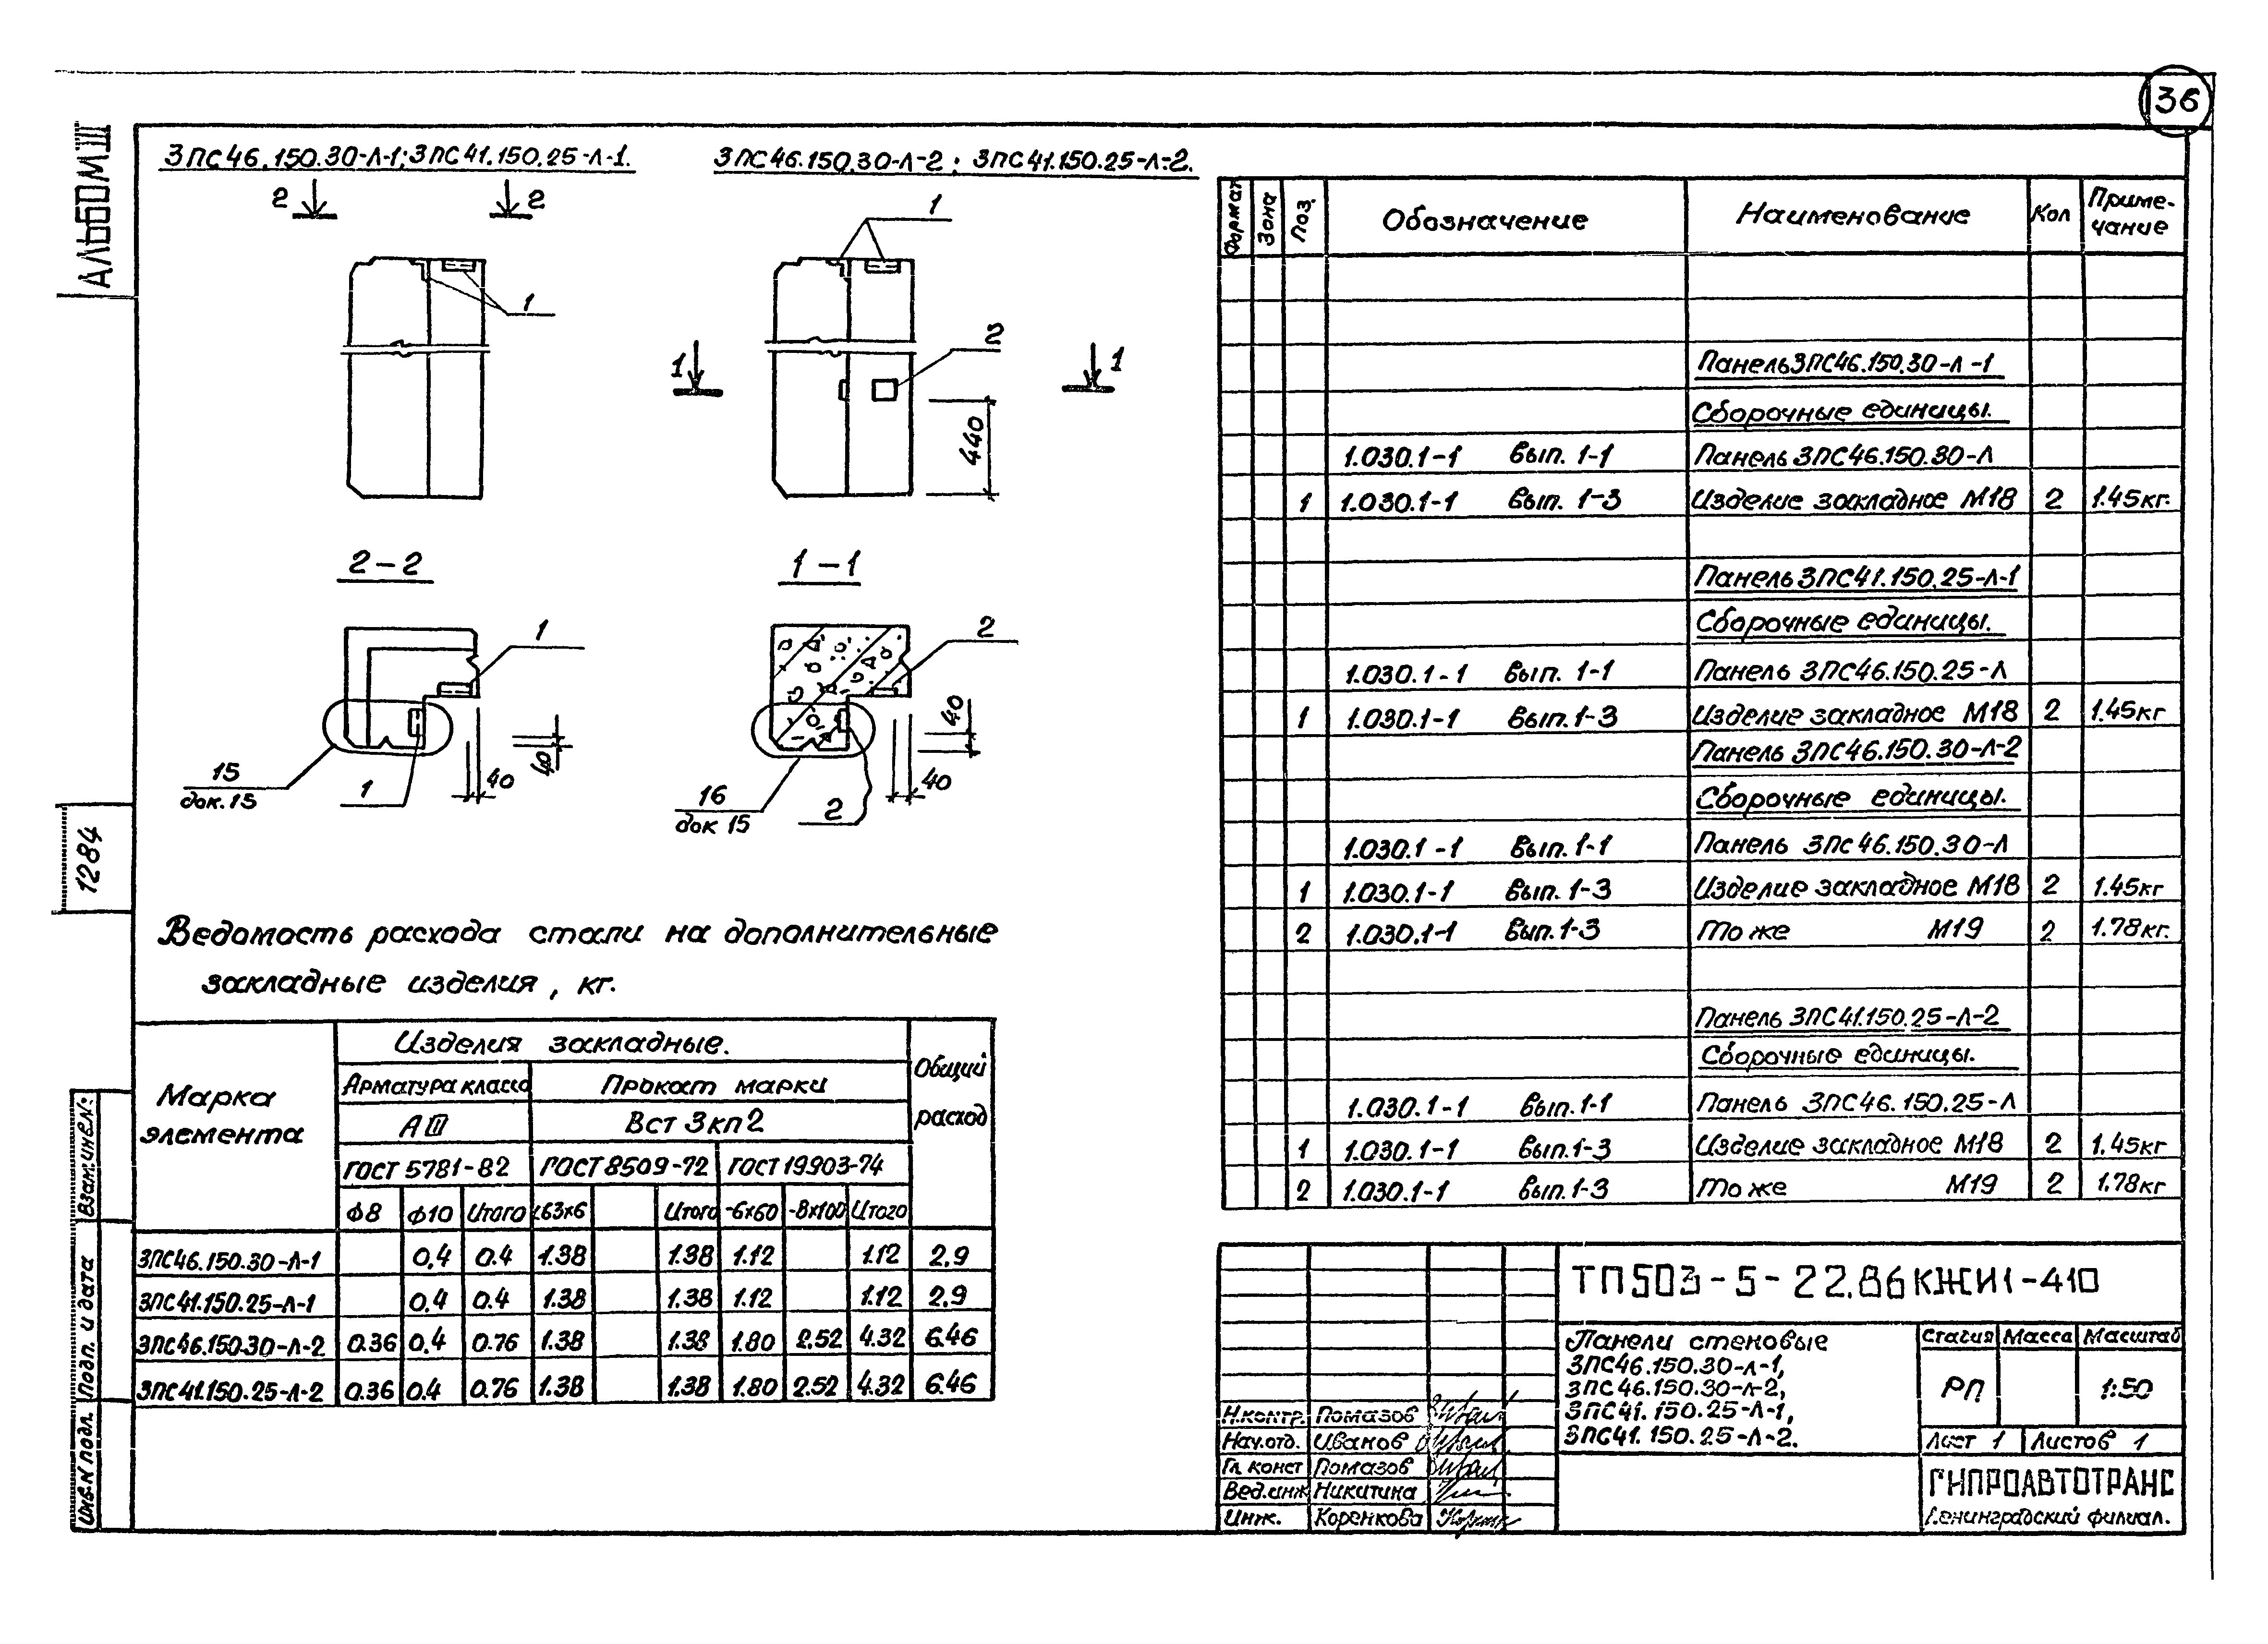 36
АЛЬБОМ III
3ПС46.150.30-Л-1; 3ПС41.150.25-Л-1.
2 2
1
2-2
1
15
док.15
1
40
40
3ПС46.150.30-Л-2; 3ПС41.150.25-Л-2.
1
2
1 1
440
1-1
2
16
док 15
2
40
40
1284
Ведомость расхода стали на дополнительные
закладные изделия, кг.
Марка элемента | Изделия закладные. | Общий расход
Арматура класса | Прокат марки
А III | Вст 3кп2
ГОСТ 5781-82 | ГОСТ 8509-72 | ГОСТ 19903-74
Ф8 | Ф10 | Итого | L63х6 | Итого | -6х60 | -8х100 | Итого
3ПС46.150.30-Л-1 | 0,4 | 0.4 | 1.38 | 1.38 | 1.12 | 1.12 | 2,9
3ПС41.150.25-Л-1 | 0,4 | 0.4 | 1.38 | 1.38 | 1.12 | 1.12 | 2,9
3ПС46.150.30-Л-2 | 0.36 | 0.4 | 0.76 | 1.38 | 1.38 | 1.80 | 2.52 | 4.32 | 6.46
3ПС41.150.25-Л-2 | 0.36 | 0.4 | 0.76 | 1.38 | 1.38 | 1.80 | 2.52 | 4.32 | 6.46
Взам.инв.N:
Подп. и дата
Инв.N подл.
Формат | Зона | Поз. | Обозначение | Наименование | Кол | Приме-чание
Панель 3ПС46.150.30-Л-1
Сборочные единицы.
1.030.1-1 вып. 1-1 | Панель 3ПС46.150.30-Л
1 | 1.030.1-1 вып. 1-3 | Изделие закладное М18 | 2 | 1.45кг.
Панель 3ПС41.150.25-Л-1
Сборочные единицы.
1.030.1-1 вып. 1-1 | Панель 3ПС46.150.25-Л
1 | 1.030.1-1 вып.1-3 | Изделие закладное М18 | 2 | 1.45кг
Панель 3ПС46.150.30-Л-2
Сборочные единицы.
1.030.1-1 вып.1-1 | Панель 3ПС46.150.30-Л
1 | 1.030.1-1 вып.1-3 | Изделие закладное М18 | 2 | 1.45кг
2 | 1.030.1-1 вып.1-3 | То же М19 | 2 | 1.78кг.
Панель 3ПС41.150.25-Л-2
Сборочные единицы.
1.030.1-1 вып.1-1 | Панель 3ПС46.150.25-Л
1 | 1.030.1-1 вып.1-3 | Изделие закладное М18 | 2 | 1.45кг
2 | 1.030.1-1 вып.1-3 | То же М19 | 2 | 1.78кг
ТП503-5-22.86 КЖИ1-410
Панели стеновые
3ПС46.150.30-Л-1,
3ПС46.150.30-Л-2,
3ПС41.150.25-Л-1,
3ПС41.150.25-Л-2.
Стадия | Масса | Масштаб
РП | 1:50
Лист 1 | Листов 1
ГИПРОАВТОТРАНС
Ленинградский филиал.
Н.контр. Помазов
Нач.отд. Иванов
Гл конст Помазов
Вед.инж Никитина
Инж. Коренкова